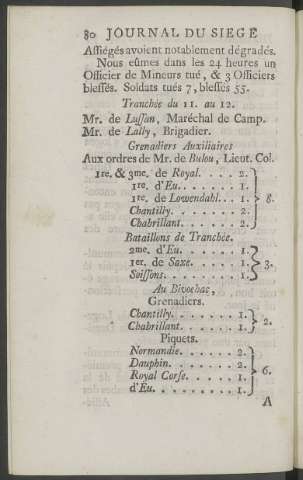 80 JOURNAL DU SIEGE
Assiégés avoient notablement dégradés.
Nous eûmes dans les 24 heures un
Officier de Mineurs tué, & 3 Officiers
blessés. Soldats tués 7, blessés 55.
Tranchée du 11. au 12.
Mr. de Lussan, Maréchal de Camp.
Mr. de Lally, Brigadier.
Grenadiers Auxiliaires
Aux ordres de Mr. de Bulou, Lieut. Col.
1re. & 3me. de Royal. . . . 2.
1re. d'Eu. . . . . . 1.
1re. de Lowendahl. . . 1. 8.
Chantilly. . . . . . 2.
Chabrillant. . . . . 2.
Bataillons de Tranchée.
2me. d'Eu. . . . . . 1.
1er. de Saxe. . . . . 1. 3.
Soissons. . . . . . . 1.
Au Bivochac,
Grenadiers.
Chantilly. . . . . . 1. 2.
Chabrillant. . . . . 1.
Piquets.
Normandie. . . . . . 2.
Dauphin. . . . . . . 2.
Royal Corse. . . . . 1. 6.
d'Eu. . . . . . . . 1.
A